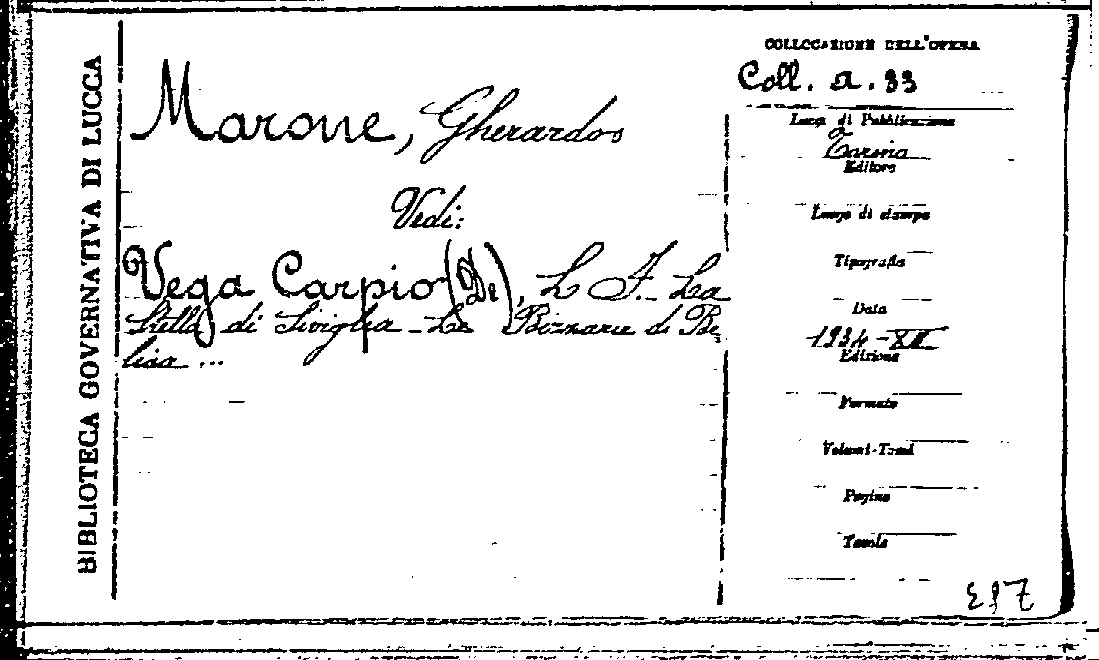 BIBLIOTECA GOVERNATIVA DI LUCCA
Marone, Gherardos
Vedi:
Vega Carpio (De), L. F. - La
Stella di Siviglia - Le Bizzarrie di Be
lisa ...
COLLOCAZIONE DELL'OPERA
Coll. a. 33
Luogo di Pubblicazione
Torino
Editore
Luogo di stampa
Tipografia
Data
1934 - XII
Edizione
Formato
Volumi-Tomi
Pagine
Tavole